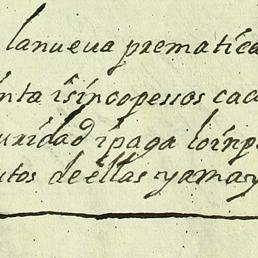 lanueva prematica
nta isincopessos cac
uridad ipaga loinp
utos de ellas yamay